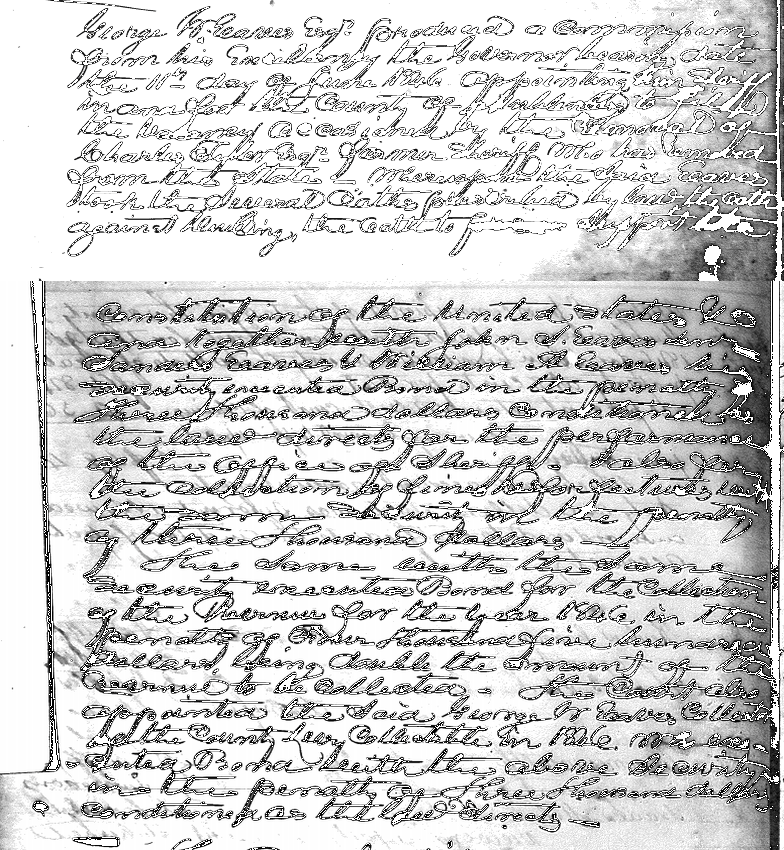 George W Eaves Esqr. produced a Commission
from his Excellency the Governor bearing date
the 11th day of June 1846 appointing him Sheriff
in and for the County of Muhlenberg to fill
the Vacancy occasioned by the removal of
Charles Tyler Esqr. former Sheriff Who has removed
from this State. Whereupon the said Eaves
took the several Oaths prescribed by law the oath
against duelling, the oath to support the
Constitution of the United States &c
and together with John S. Eaves and
Samuel Eaves & William Eaves his
Security executed Bond in the penalty
Three Thousand dollars Conditioned as
the law directs for the performance
of the Office of Sheriff. Also for
the collection of fines & forfeitures with
the same Security in the penalty
of three Thousand Dollars
The Same with the Same
Security executed Bond for the Collection
of the Revenue for the year 1846 in the
penalty of Thousand five hundred
Dollars being double the amount of the
revenue to be Collected. The Court also
appointed the Said George W Eaves Collector
of the County Levy Collectable in 1846. who exe-
cuted Bond with the above Security
in the penalty of Three Thousand dollars
conditioned as the law directs